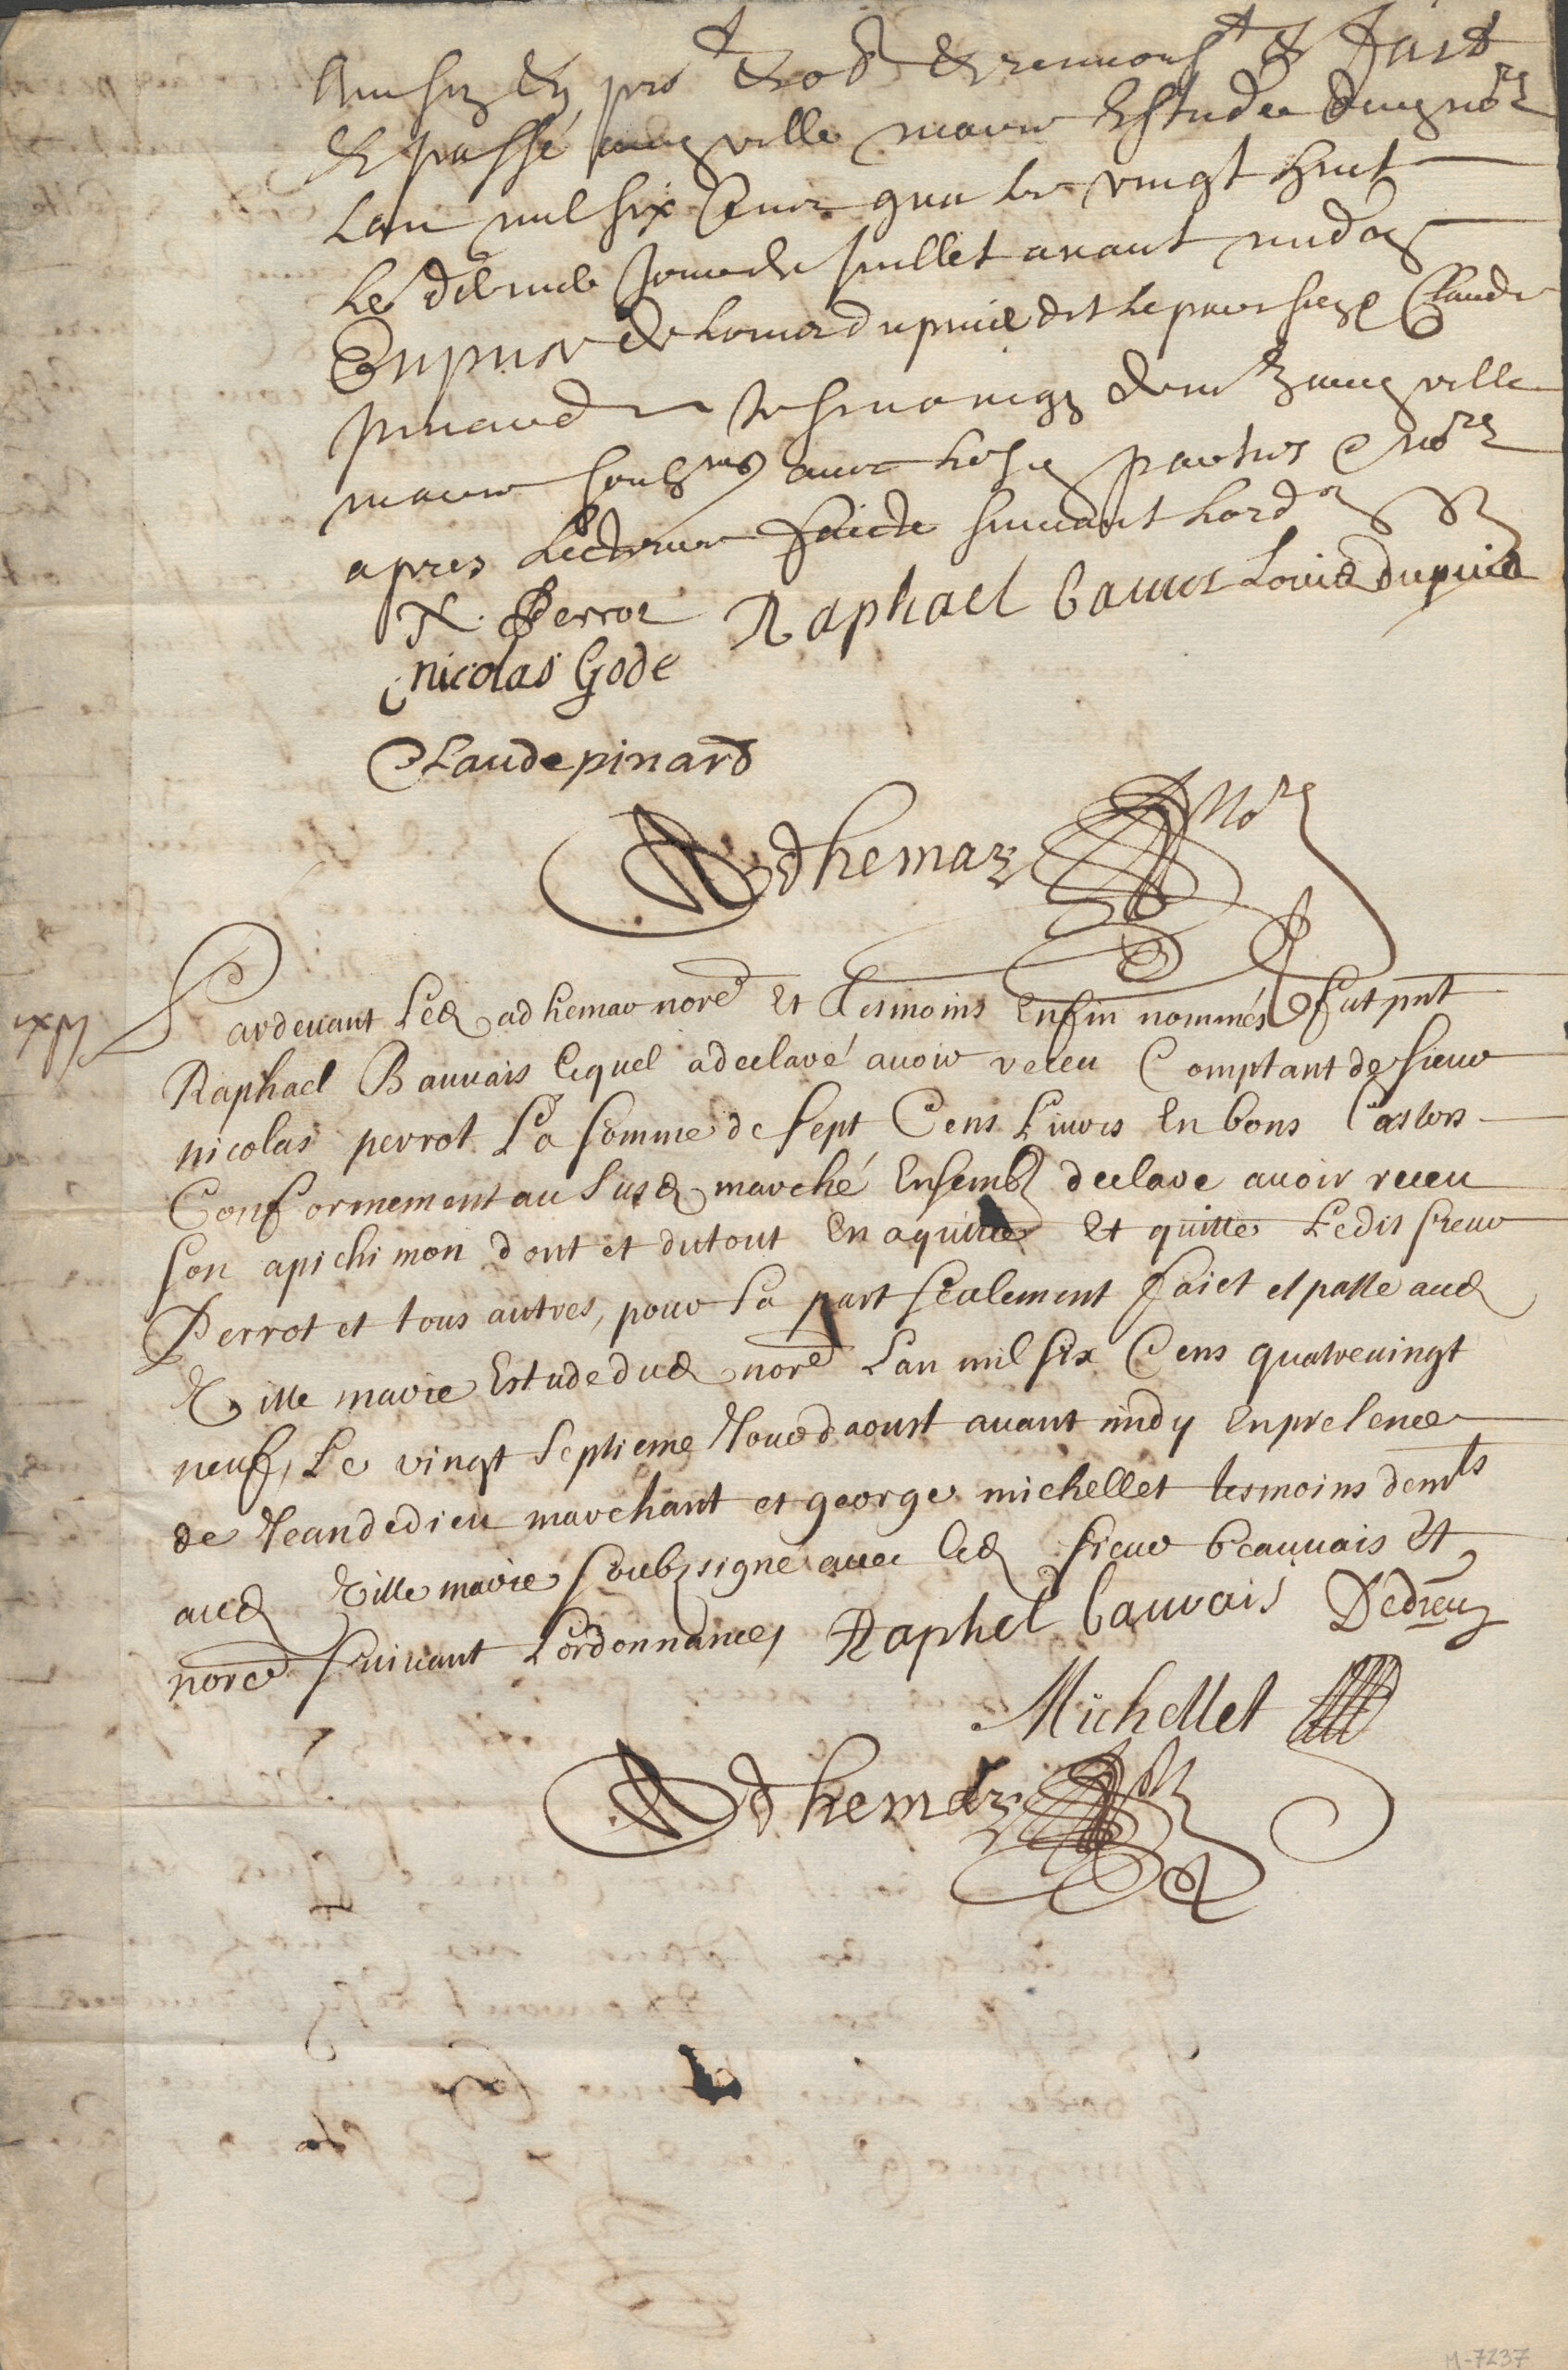 Ainsy &c pro &c ob &c renonc &c Faict
& passé aud villemarie Estude dud nore
Lan mil six Cens quatre vingt huit
Le jour de Juillet avant midy
En pnce de Louis dupuis dit le parisien & Claude
pinard tesmoings demts aud ville
marie soubsnes avec lesd parties & nore
apres Lecture faicte suivant Lord
N. Perrot Raphael bauvos Louis dupuis
nicolas Gode
Claude pinard
Adhemar Nore
Pardevant Led adhemar nore Et Tesmoins Enfin nommés fut pnt
Raphael Bauvais lequel a declaré avoir receu Comptant de sieur
nicolas perrot La somme de sept Cens Livres En bons Castors
Conformement au susd marché Ensembl declare avoir receu
son apichimon dont et du tout En aquitte Et quitte Ledit sieur
Perrot et tous autres, pour sa part seulement faict et passé aud
Ville marie Estude dud nore Lan mil six Cens quatrevingt
neuf, Le vingt septieme Jour daoust avant midy En presence
de Jean dedieu marchant et george michellet tesmoins demts
aud Ville marie soubzsigne avec led sieur beauvais Et
nore suivant Lordonnance, Raphel bauvais Dedieu
Michellet
Adhemar
M-7237